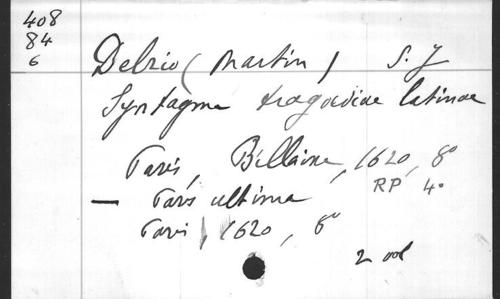 408
84
6
Delrio (Martin) S. J
Syntagma tragoediae latinae
Paris, Billaine, 1620, 8°
RP 4°
— Pars ultima
Paris, 1620, 8°
2 vol